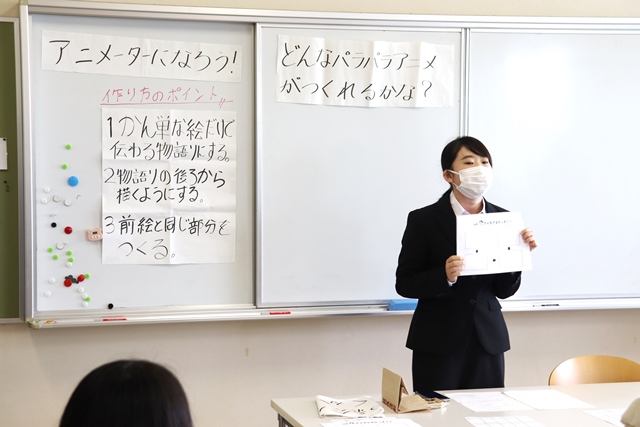 アニメーターになろう!
作り方のポイント
1かん単な絵だけで
伝わる物語りにする。
2物語りの後ろから
描くようにする。
3前絵と同じ部分を
つくる。
どんなパラパラアニメ
がつくれるかな?